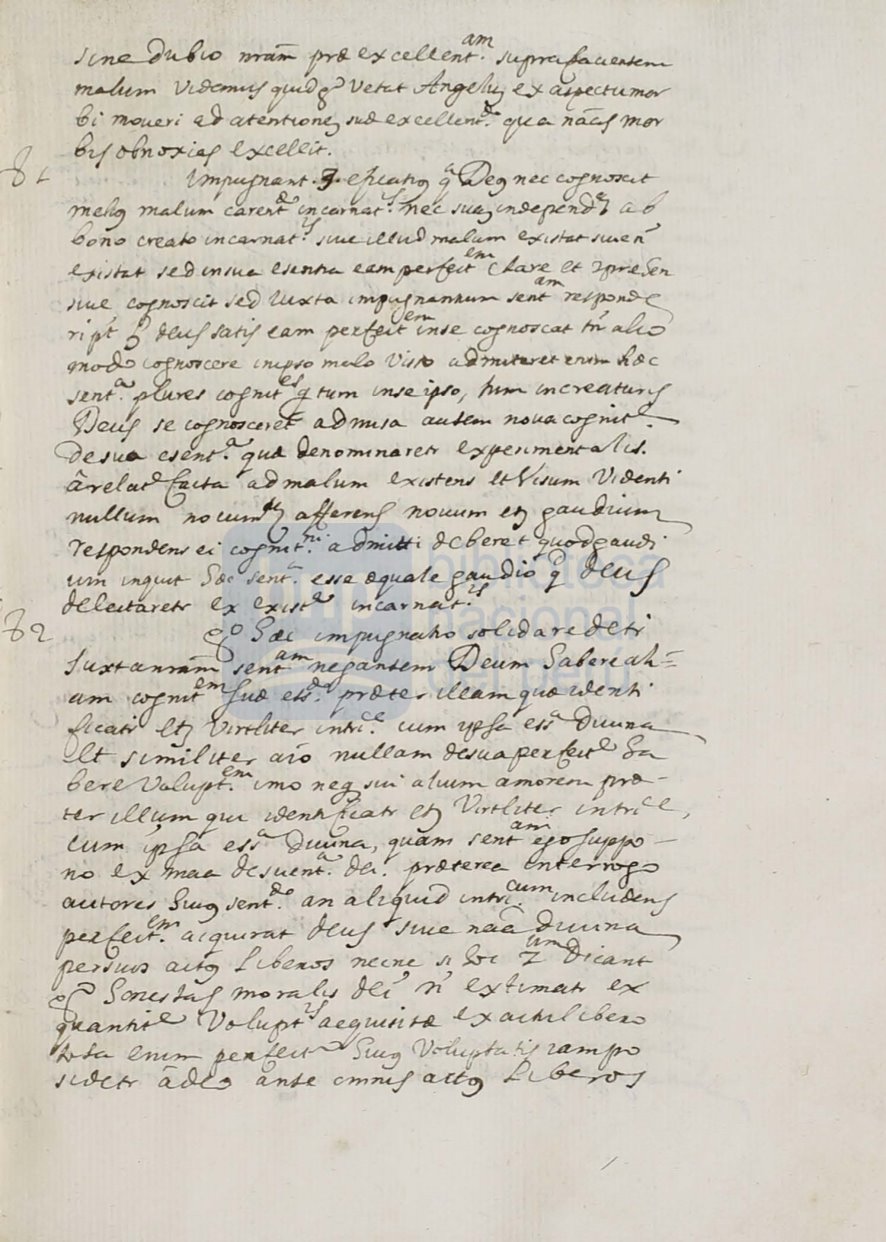 sine dubio nram præ excellent.am supra facientem
malum videmus quid vetat Angelus ex aspectu mor
bi moveri ad atentionem suæ excellent. qua mor
bis obnoxias excellit.
81 Impugnant. 3. Deus nec cognoscit
malum carent incarnat.is nec suam independ ab
bono creato incarnat.is sive illud malum existat sive n
existat sed in sua esentia eam perfect.em clare et
sive cognoscit sed iuxta impugnantium sent.am responde
deus satis eam perfect.em in se cognoscat tn alio
modo cognoscere in ipso malo visto admitteret enim hæc
sent.a plures cognit.es tum in se ipso, tum in creaturis
Deus se cognosceret admisa autem nova cognit.e
de sua esent.a quæ denominaretr experimentalis.
facta ad malum existens et visum videnti
nullum afferens novum gaudium
respondens ei cognit.ni admitti deberet quod gaudi
um inquit hæc sent.a esse æquale gaudio q deus
delectaretr ex exist incarnat.is
82 hæc impugnatio solidaredeti
Iuxta nram sent.am negantem Deum habere ali=
am cognit.em suæ ess. præter illam quæ identi
ficatr virtliter intri.ce cum ipsa ess.a divina
et similiter aio nullam de sua perfect.e ha
bere volupt.em imo neq sui alium amorem præ-
ter illum qui identificatr virtliter intri.ce,
cum ipsa ess.a divina, quam sent.am ego suppo-
no ex maa de scient.a dei. præterea interrogo
autores huius sent. an aliquid intri.cum includens
perfect.em acquirat deus sive divina
per suos actus liberos necne si dicant
honestas moralis dei n extimatr ex
quantit.e volupt.is aequisitæ ex actu libero
tota enim perfect.o huius voluptatis iam po
sidetr a deo ante omnes actus liberos
biblioteca
nacional
del perú